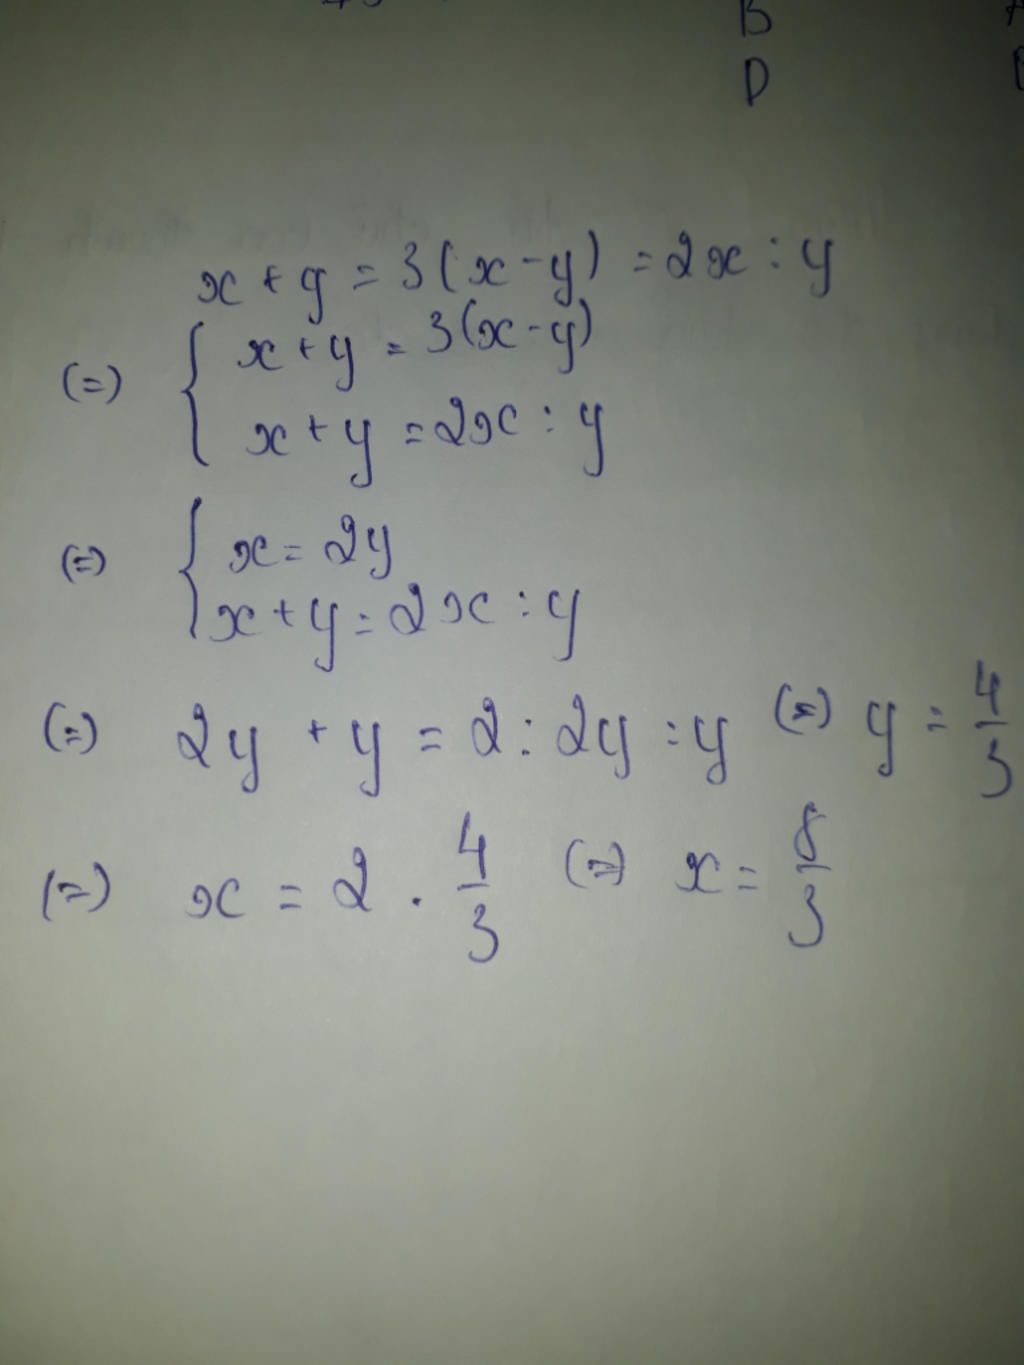 B
D
x + y = 3(x - y) = 2x : y
(=) { x + y = 3(x - y)
x + y = 2x : y
(=) { x = 2y
x + y = 2x : y
(=) 2y + y = 2 : 2y : y (=) y = 4/3
(=) x = 2 . 4/3 (=) x = 8/3